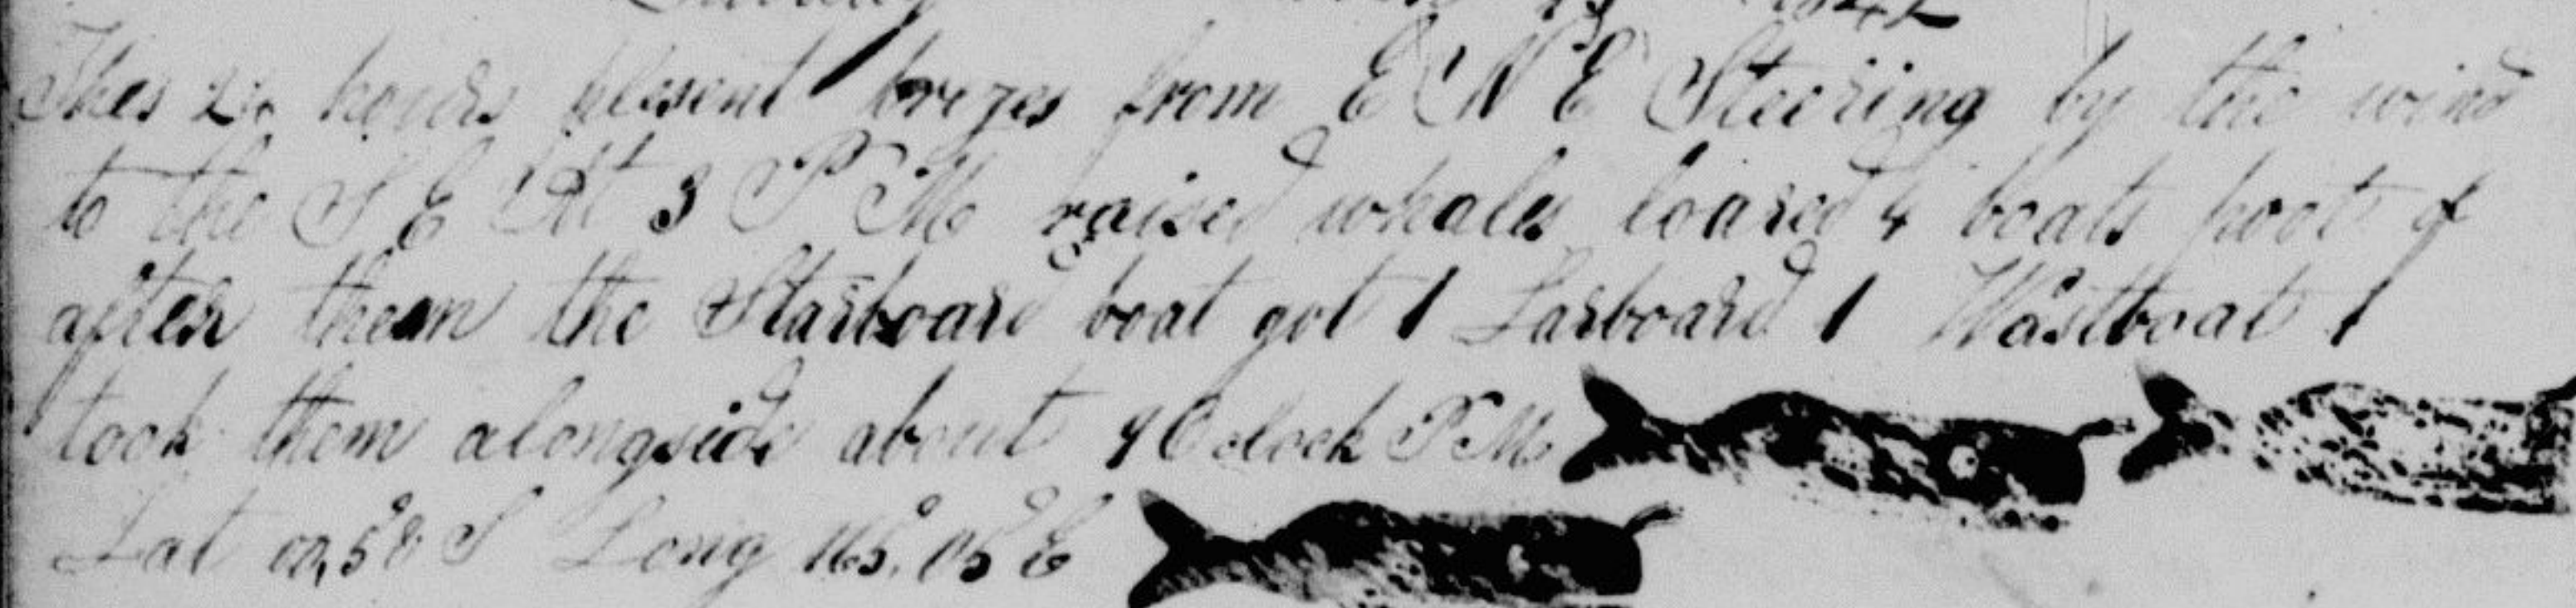 1842
Thes 24 hours plesent brezes from E N E Steering by the wind
to the S E At 3 P M raised whales loared 4 boats poot of
after them the Starboard boat got 1 Larboard 1 Wastboat 1
took them alongside about 9 O clock P M
Lat 00,58 S Long 165,05 E